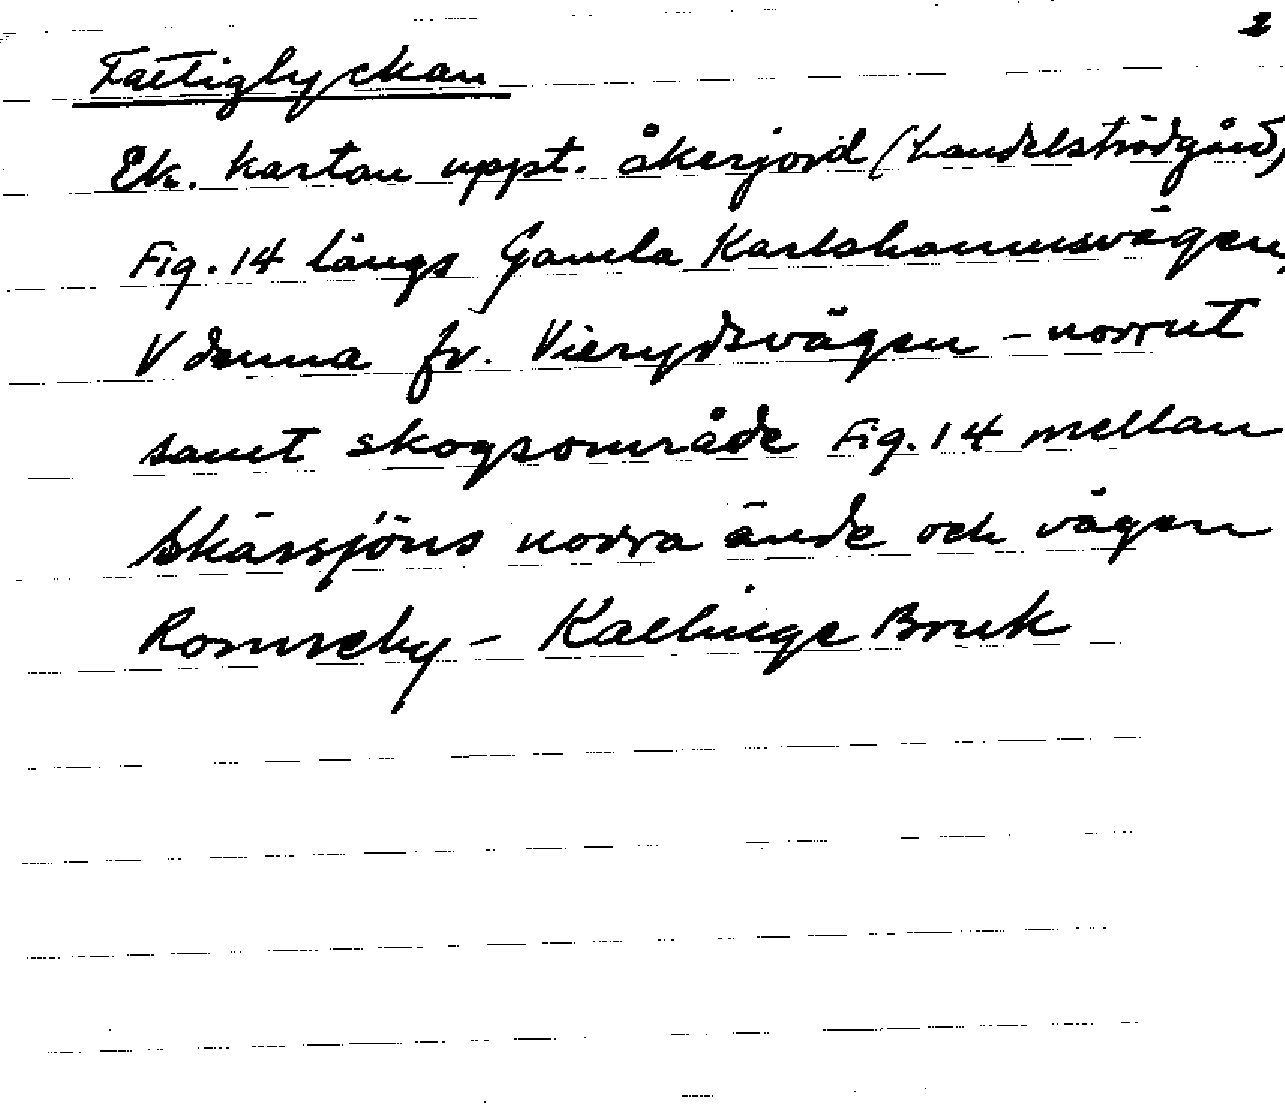 2
Fattiglyckan
Ek. kartan uppt. åkerjord (handelsträdgård)
Fig. 14 längs Gamla Karlshamnsvägen,
V denna fr. Vierydsvägen - norrut
samt skogsområde Fig. 14 mellan
Skärsjöns norra ände och vägen
Romseby - Kallinge Bruk